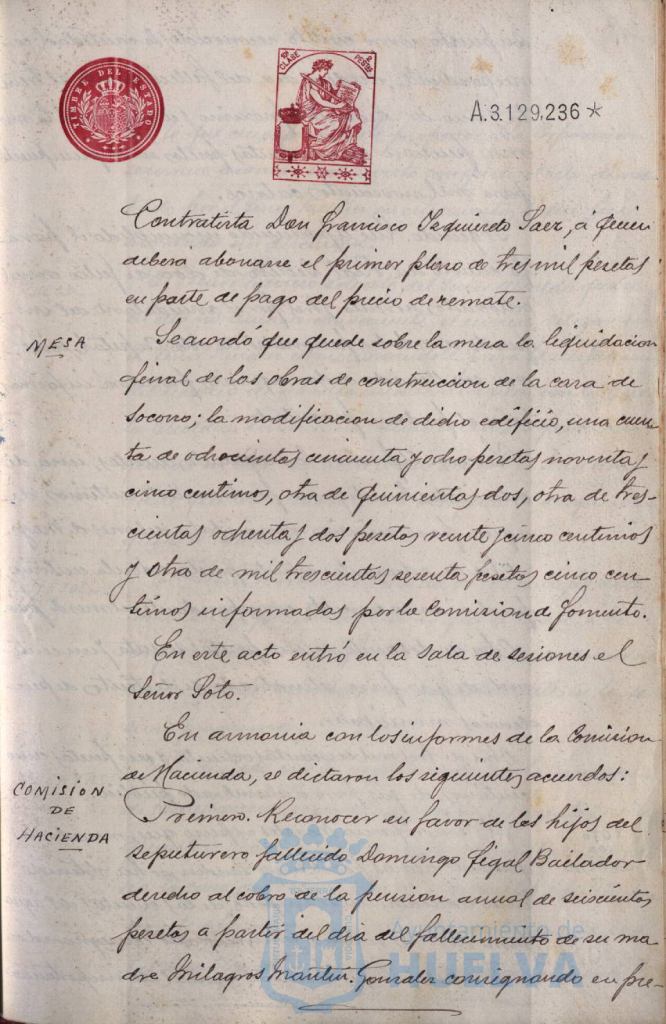 TIMBRE DEL ESTADO
10ª CLASE
2 PESTAS
A.3.129,236 *
Contratista Don Francisco Izquierdo Saez, á quien
deberá abonarse el primer plazo de tres mil pesetas
en parte de pago del precio de remate.
MESA
Se acordó que quede sobre la mesa la liquidacion
final de las obras de construccion de la casa de
socorro; la modificacion de dicho edificio, una cuen-
ta de ochocientas cincuenta y ocho pesetas noventa y
cinco centimos, otra de quinientas dos, otra de tres-
cientas ochenta y dos pesetas veinte y cinco centimos
y otra de mil trescientas sesenta pesetas cinco cen-
timos informadas por la Comision de Fomento.
En este acto entró en la sala de sesiones el
Señor Soto.
En armonia con los informes de la Comision
de Hacienda, se dictaron los siguientes acuerdos:
COMISION
DE
HACIENDA
Primero. Reconocer en favor de los hijos del
sepulturero fallecido Domingo Figal Bailador
derecho al cobro de la pension anual de seiscientas
pesetas a partir del dia del fallecimiento de su ma-
dre Milagros Gonzalez consignando en pre-
Ayuntamiento de
HUELVA